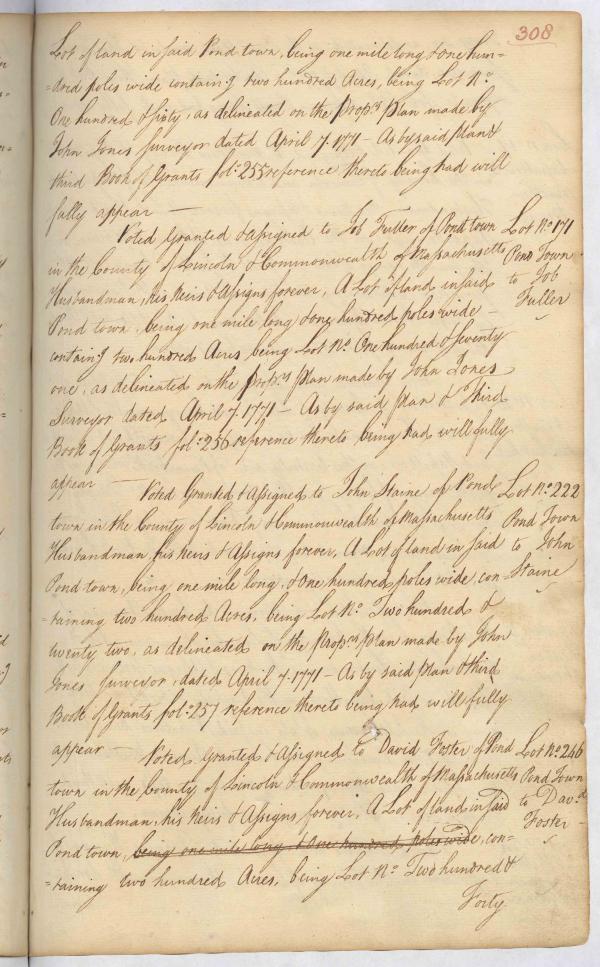 308
Lot of land in said Pond town, being one mile long & one hun=
=dred poles wide containg two hundred Acres, being Lot No.
One hundred & sixty, as delineated on the Proprs plan made by
John Jones Surveyor dated April 7. 1771 - As by said plan &
third Book of Grants fol. 255 reference thereto being had will
fully appear —
Voted Granted & Assigned to Job Fuller of Pond town
in the County of Lincoln & Commonwealth of Massachusetts
Husbandman, his Heirs & Assigns forever, A Lot of land in said
Pond town, being one mile long & one hundred poles wide -
containg two hundred Acres being Lot No. One hundred & seventy
one, as delineated on the proprs plan made by John Jones
Surveyor dated April 7. 1771 - As by said plan & Third
Book of Grants fol. 256 reference thereto being had will fully
appear —
Lot No. 171
Pond Town
to Job
Fuller
Voted Granted & Assigned to John Staine of Pond
town in the County of Lincoln & Commonwealth of Massachusetts
Husbandman, his heirs & Assigns forever, A Lot of land in said
Pond town, being one mile long, & One hundred poles wide, con-
=taining two hundred Acres, being Lot No. Two hundred &
twenty two, as delineated on the Proprs plan made by John
Jones Surveyor, dated April 7. 1771 - As by said plan & third
Book of Grants fol. 257 reference thereto being had will fully
appear —
Lot No. 222
Pond Town
to John
Staine
Voted Granted & Assigned to David Foster of Pond
town in the County of Lincoln & Commonwealth of Massachusetts
Husbandman, his Heirs & Assigns forever, A Lot of land in said
Pond town, being one mile long & one hundred poles wide, con-
=taining two hundred Acres, being Lot No. Two hundred &
Forty
Lot No. 246
Pond Town
to David
Foster